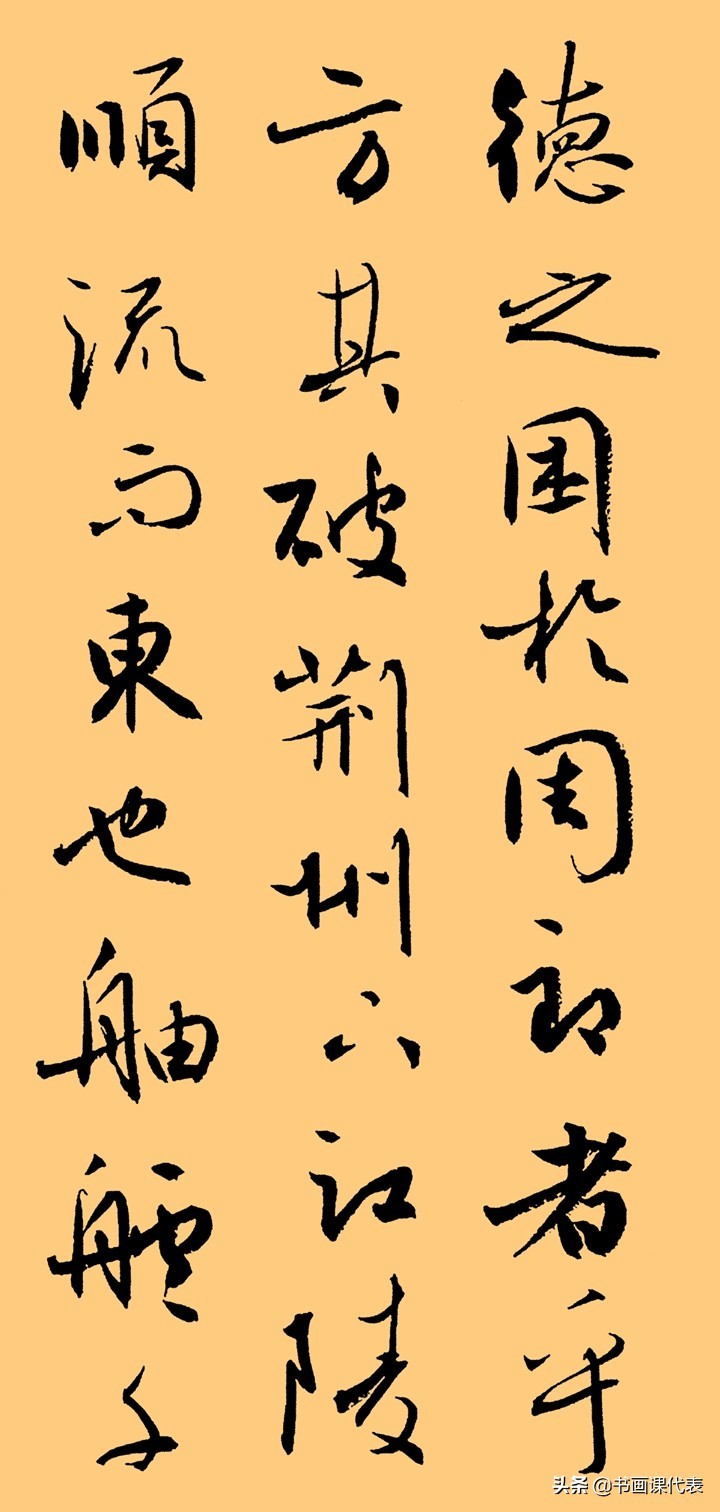 德之困於周郎者乎
方其破荆州下江陵
順流而東也舳艫千
头条 @书画课代表